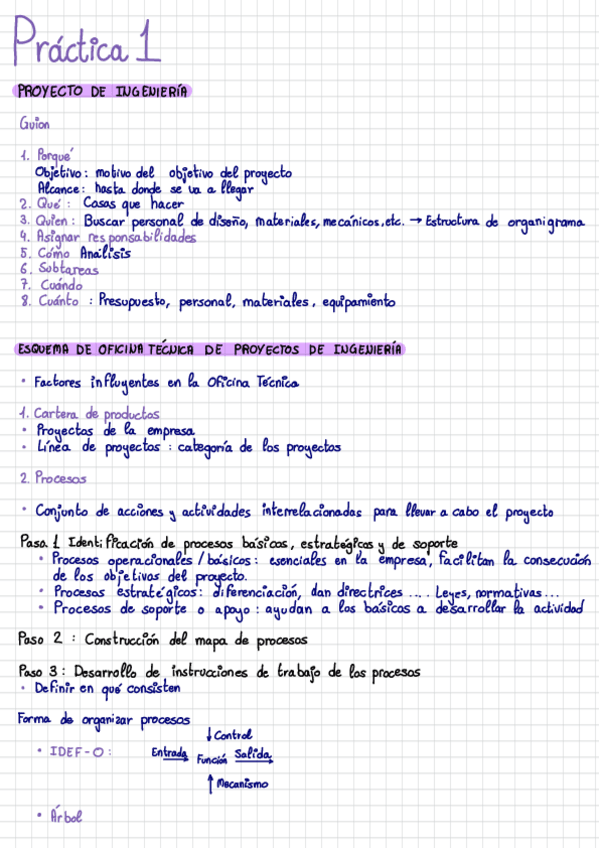 Práctica 1
PROYECTO DE INGENIERÍA
Guion
1. Porqué
Objetivo: motivo del objetivo del proyecto
Alcance: hasta donde se va a llegar
2. Qué: Cosas que hacer
3. Quien: Buscar personal de diseño, materiales, mecánicos, etc. → Estructura de organigrama
4. Asignar responsabilidades
5. Cómo Análisis
6. Subtareas
7. Cuándo
8. Cuánto: Presupuesto, personal, materiales, equipamiento
ESQUEMA DE OFICINA TÉCNICA DE PROYECTOS DE INGENIERÍA
• Factores influyentes en la Oficina Técnica
1. Cartera de productos
• Proyectos de la empresa
• Línea de proyectos: categoría de los proyectos
2. Procesos
• Conjunto de acciones y actividades interrelacionadas para llevar a cabo el proyecto
Paso 1 Identificación de procesos básicos, estratégicos y de soporte
• Procesos operacionales / básicos: esenciales en la empresa, facilitan la consecución
de los objetivos del proyecto.
• Procesos estratégicos: diferenciación, dan directrices .... Leyes, normativas...
• Procesos de soporte o apoyo: ayudan a los básicos a desarrollar la actividad
Paso 2: Construcción del mapa de procesos
Paso 3: Desarrollo de instrucciones de trabajo de los procesos
• Definir en qué consisten
Forma de organizar procesos
↓ Control
• IDEF-0: Entrada Función Salida
↑ Mecanismo
• Árbol